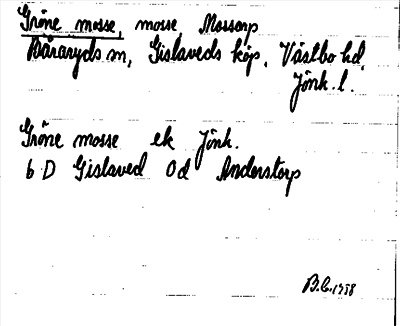 Gröne mosse, mosse Mossorp
Båraryds sn, Gislaveds köp, Västbo hd,
Jönk. l.
Gröne mosse ek Jönk.
6 D Gislaved 0 d Anderstorp
B.C. 1958